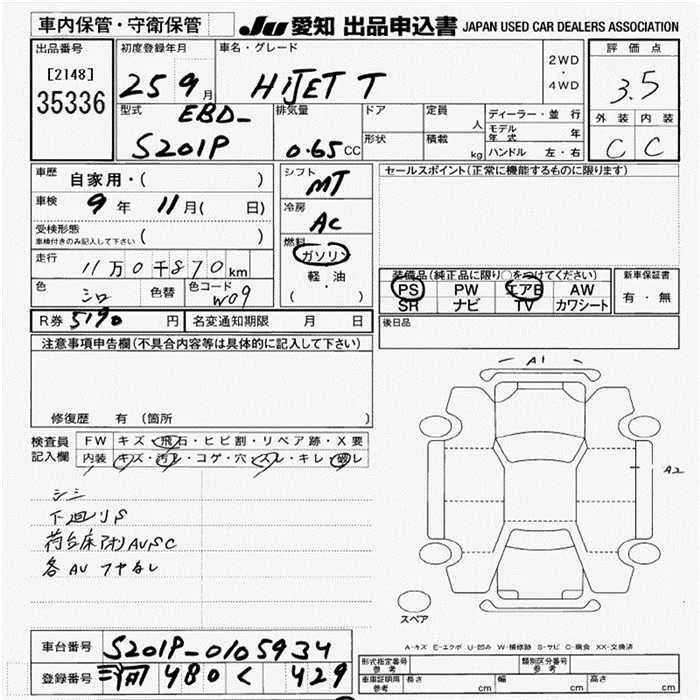 車内保管・守衛保管
JU 愛知 出品申込書 JAPAN USED CAR DEALERS ASSOCIATION
出品番号
[2148]
35336
初度登録年月
25 9 月
車名・グレード
HIJET T
2WD
・
4WD
評価点
3.5
外装 内装
C C
型式
EBD-
S201P
排気量
0.65 CC
ドア
形状
定員
人
積載
kg
ディーラー・並行
モデル年式 年
ハンドル 左・右
車歴 自家用・( )
車検 9 年 11 月( 日)
受検形態
車検付きのみ記入して下さい ( )
走行 11万0千870 km
色 シロ 色替 色コード W09
シフト
MT
冷房
AC
燃料
ガソリン
軽・油
( ・ )
セールスポイント(正常に機能するものに限ります)
装備品(純正品に限り○をつけてください)
PS PW エアB AW
SR ナビ TV カワシート
新車保証書
有・無
R券 5190 円 名変通知期限 月 日
後日品
注意事項申告欄(不具合内容等は具体的に記入して下さい)
修復歴 有 (箇所 )
検査員 FW キズ・飛石・ヒビ割・リペア跡・X要
記入欄 内装 キズ・汚レ・コゲ・穴・スレ・キレ・破レ
シミ
下廻りS
荷台床アオリAUSC
各AU ツヤなし
A1
A2
スペア
A-キズ E-エクボ U-凹み W-補修跡 S-サビ C-腐食 XX-交換済
車台番号 S201P-0105934
登録番号 480 く 429
形式指定番号 参考
類別区分番号 参考
車庫証明用 参考 長さ cm 幅 cm 高さ cm